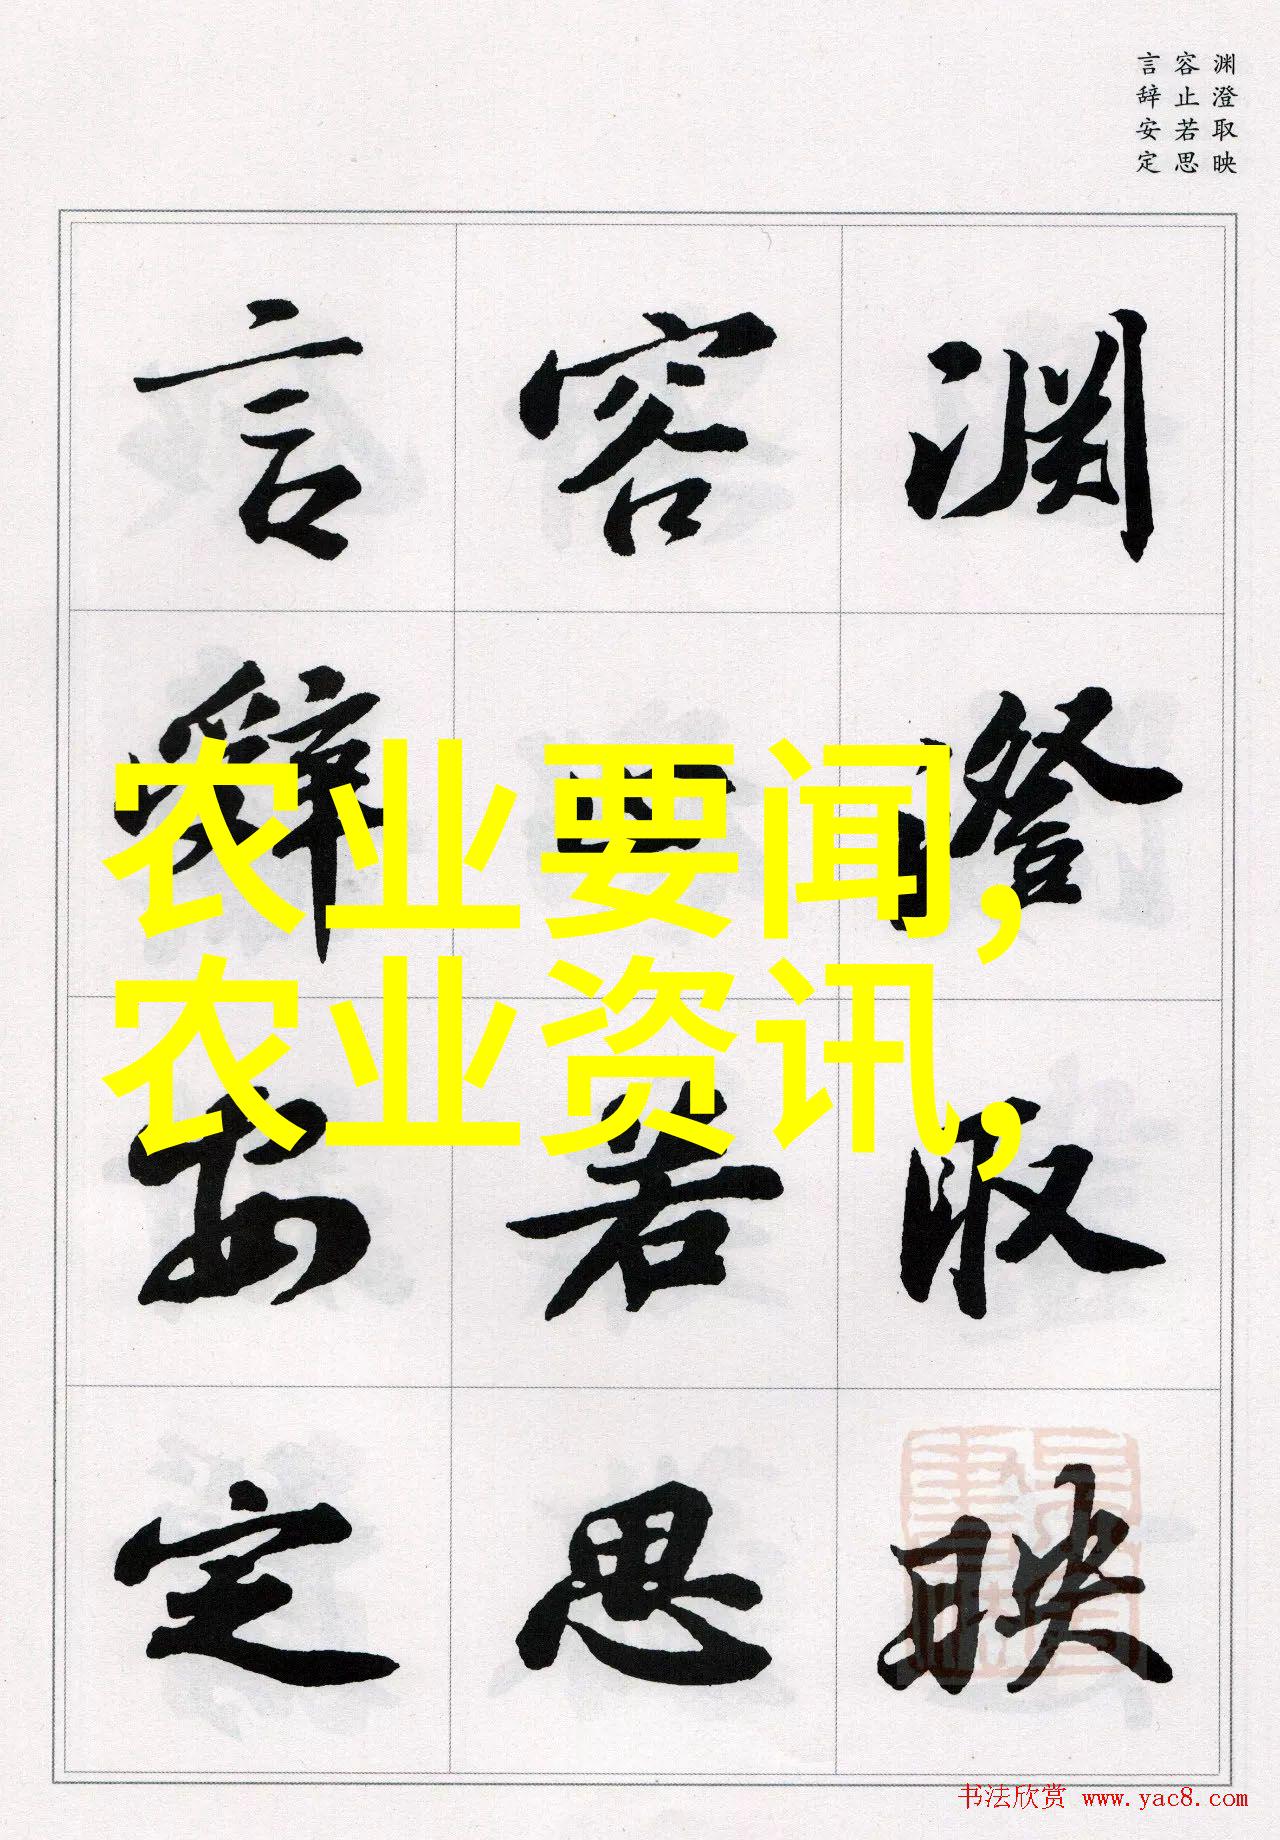 渊澄取映
容止若思
言辞安定
渊澄取映
容止若思
言辞安定
农业要闻,
农业资讯,
书法欣赏 www.yac8.com